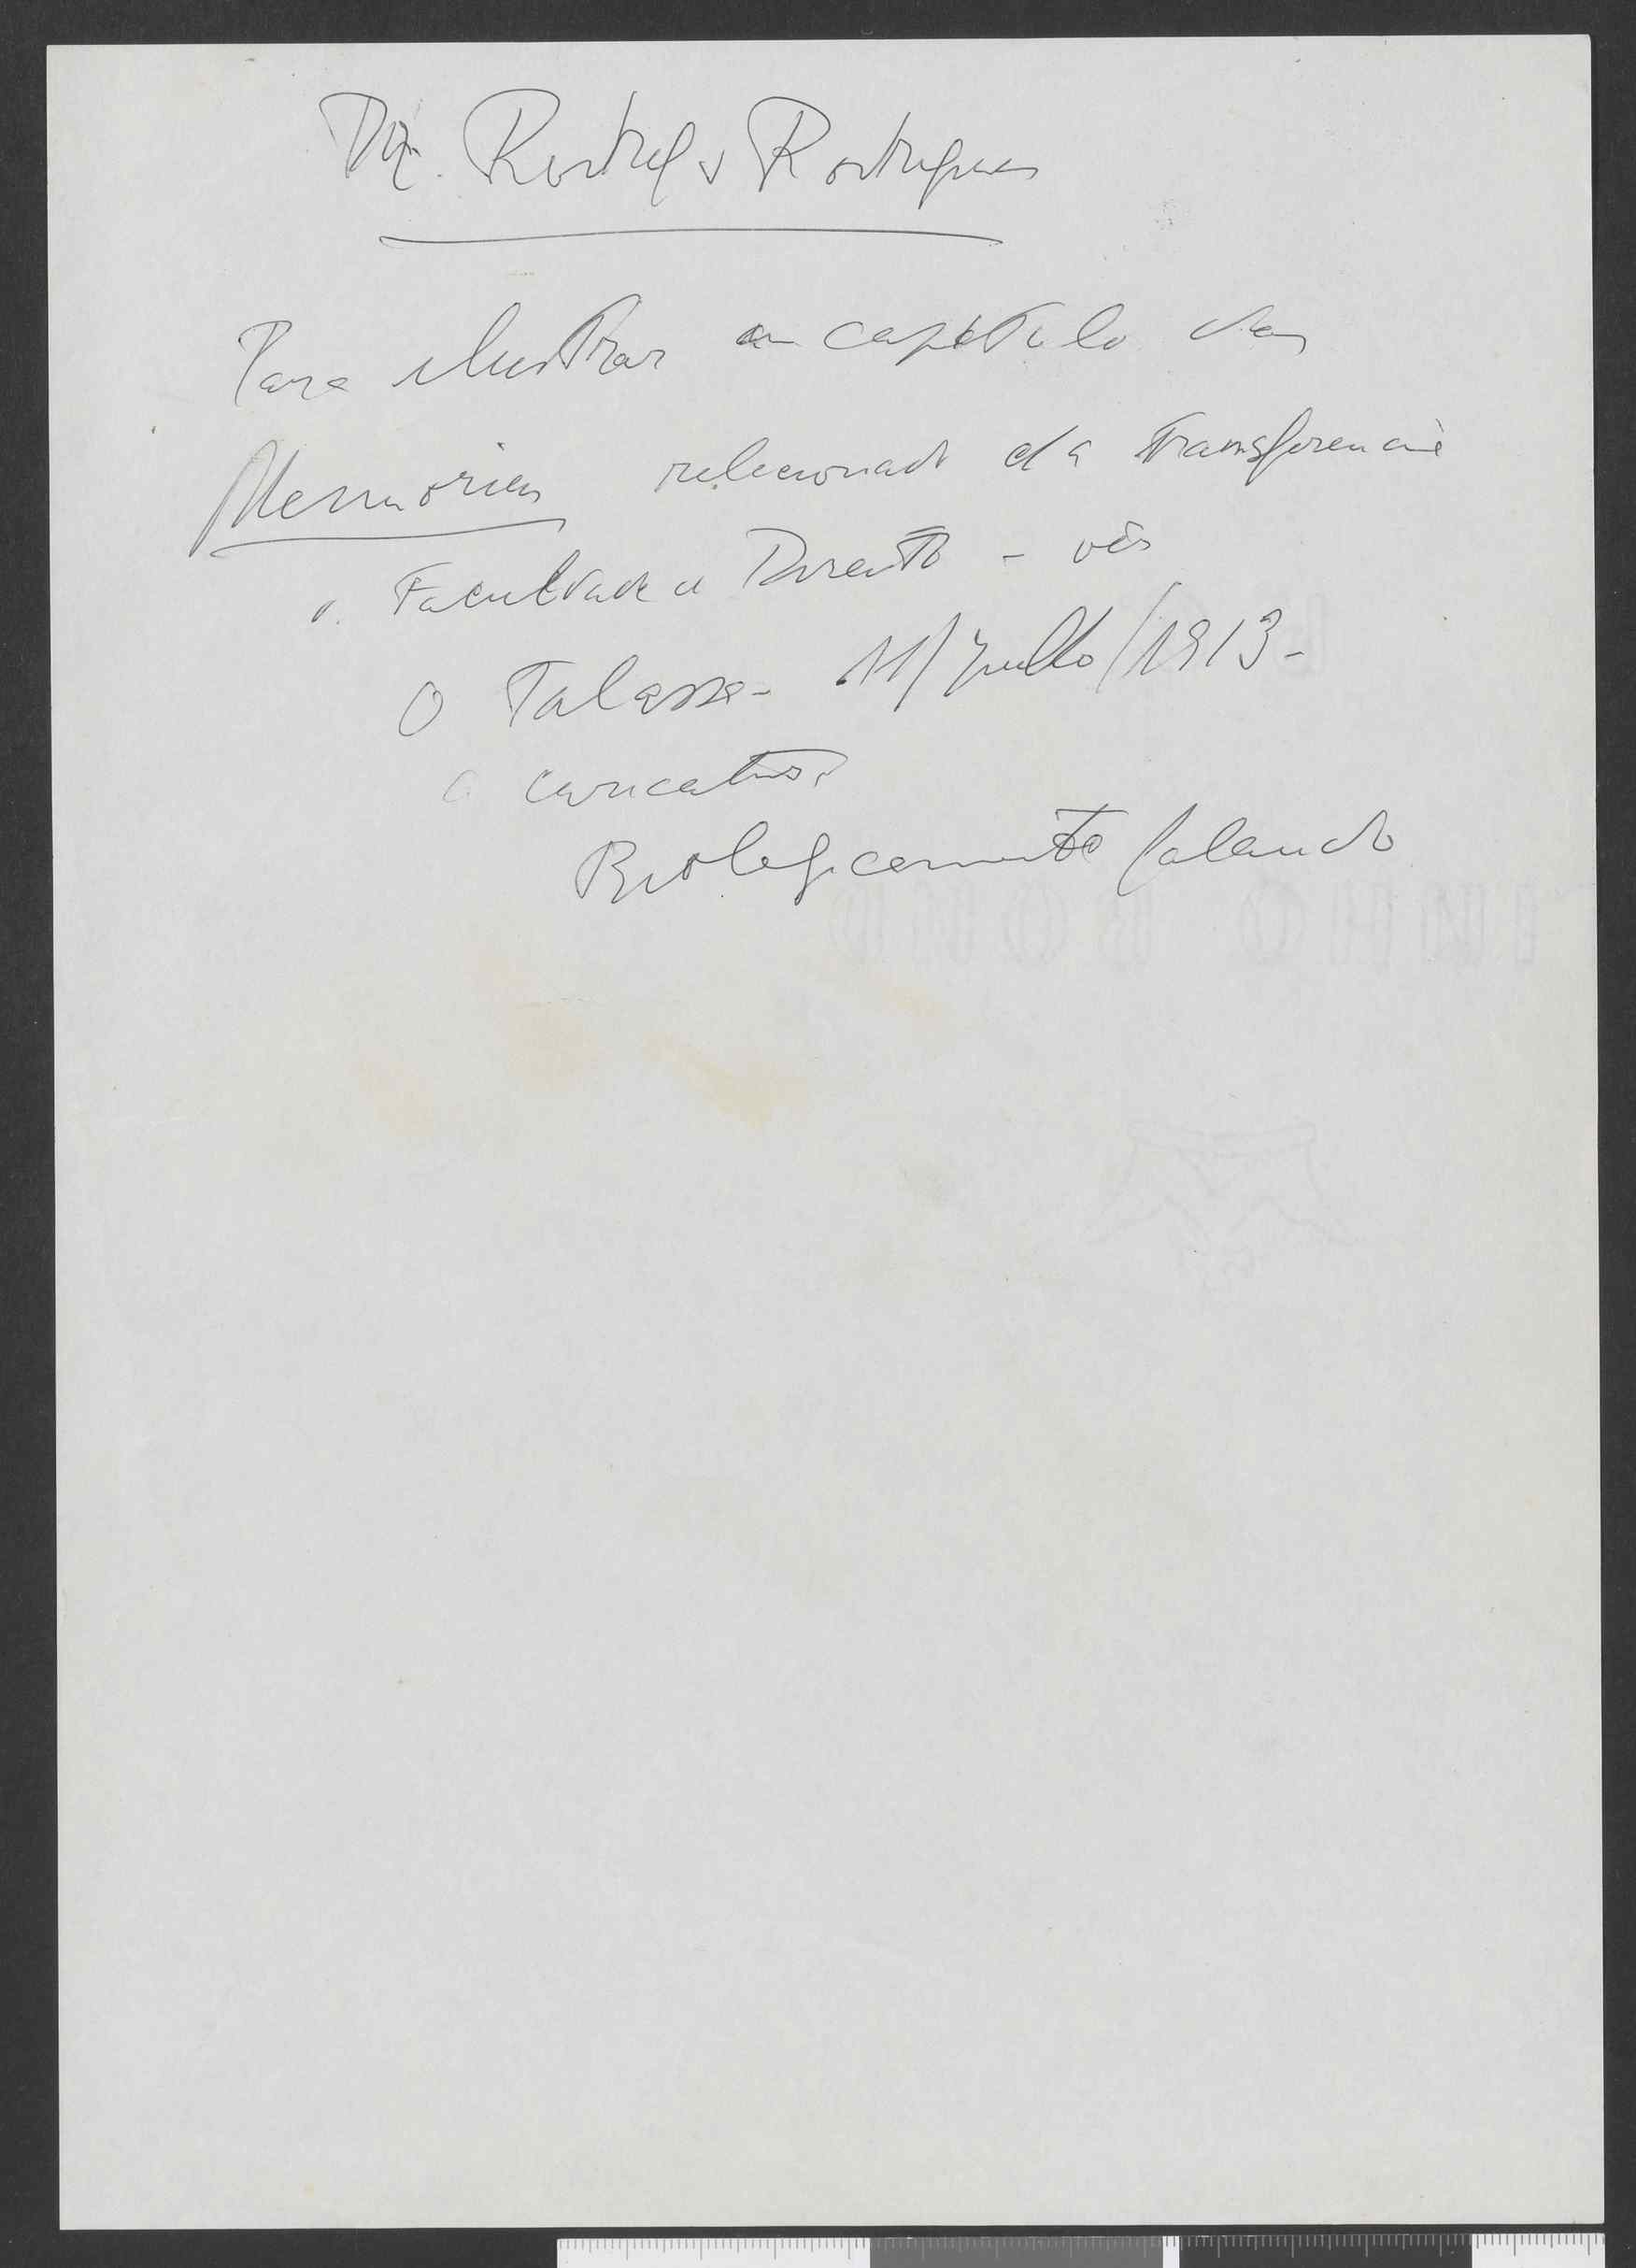 Dr. Rodrigo Rodrigues
Para ilustrar um capitulo das
Memórias relacionado da transferencia
Faculdade de Direito - vêr
O Talassa - 11/Julho/1913 -
a caricatura
Biologicamente falando